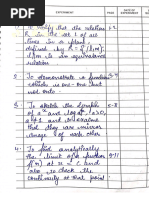 EXPERIMENT
PAGE
DATE OF
EXPERIMENT
1. To verify that the relation 1-2
R in the set L of all
lines in a plane
defined by R = {(l,m):
l∥m} is an equivalence
relation
2. To demonstrate a function
which is one-one but
not onto
3. To sketch the graphs 5-8
of aˣ and logₐx, a>0,
a≠1 and to examine
that they are mirror
image of each other
4. To find analytically
the limit of a function 9-11
f(x) at x = c and
also to check the
continuity at that point